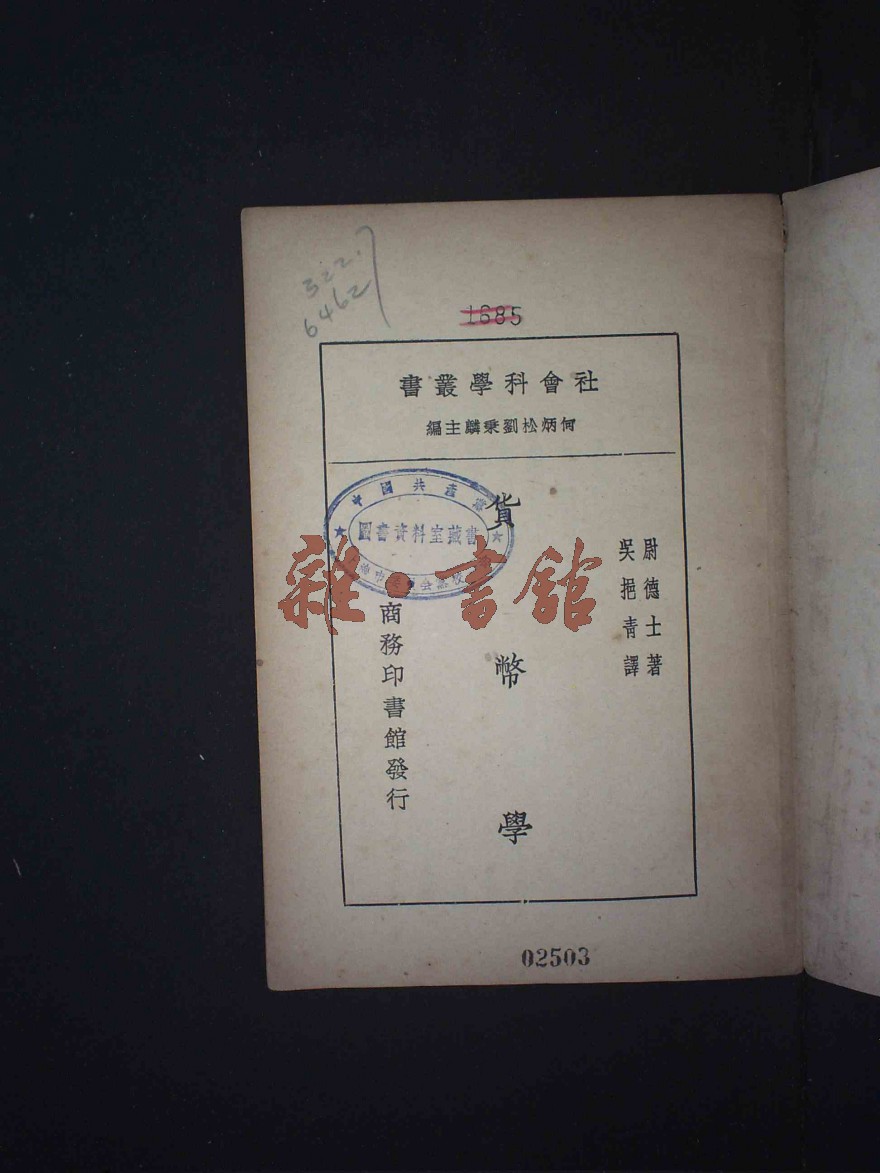 322.7
6462
1685
社會科學叢書
何炳松劉秉麟主編
尉德士著
吳挹青譯
貨幣學
商務印書館發行
中國共產黨
圖書資料室藏書
雜·書館
02503